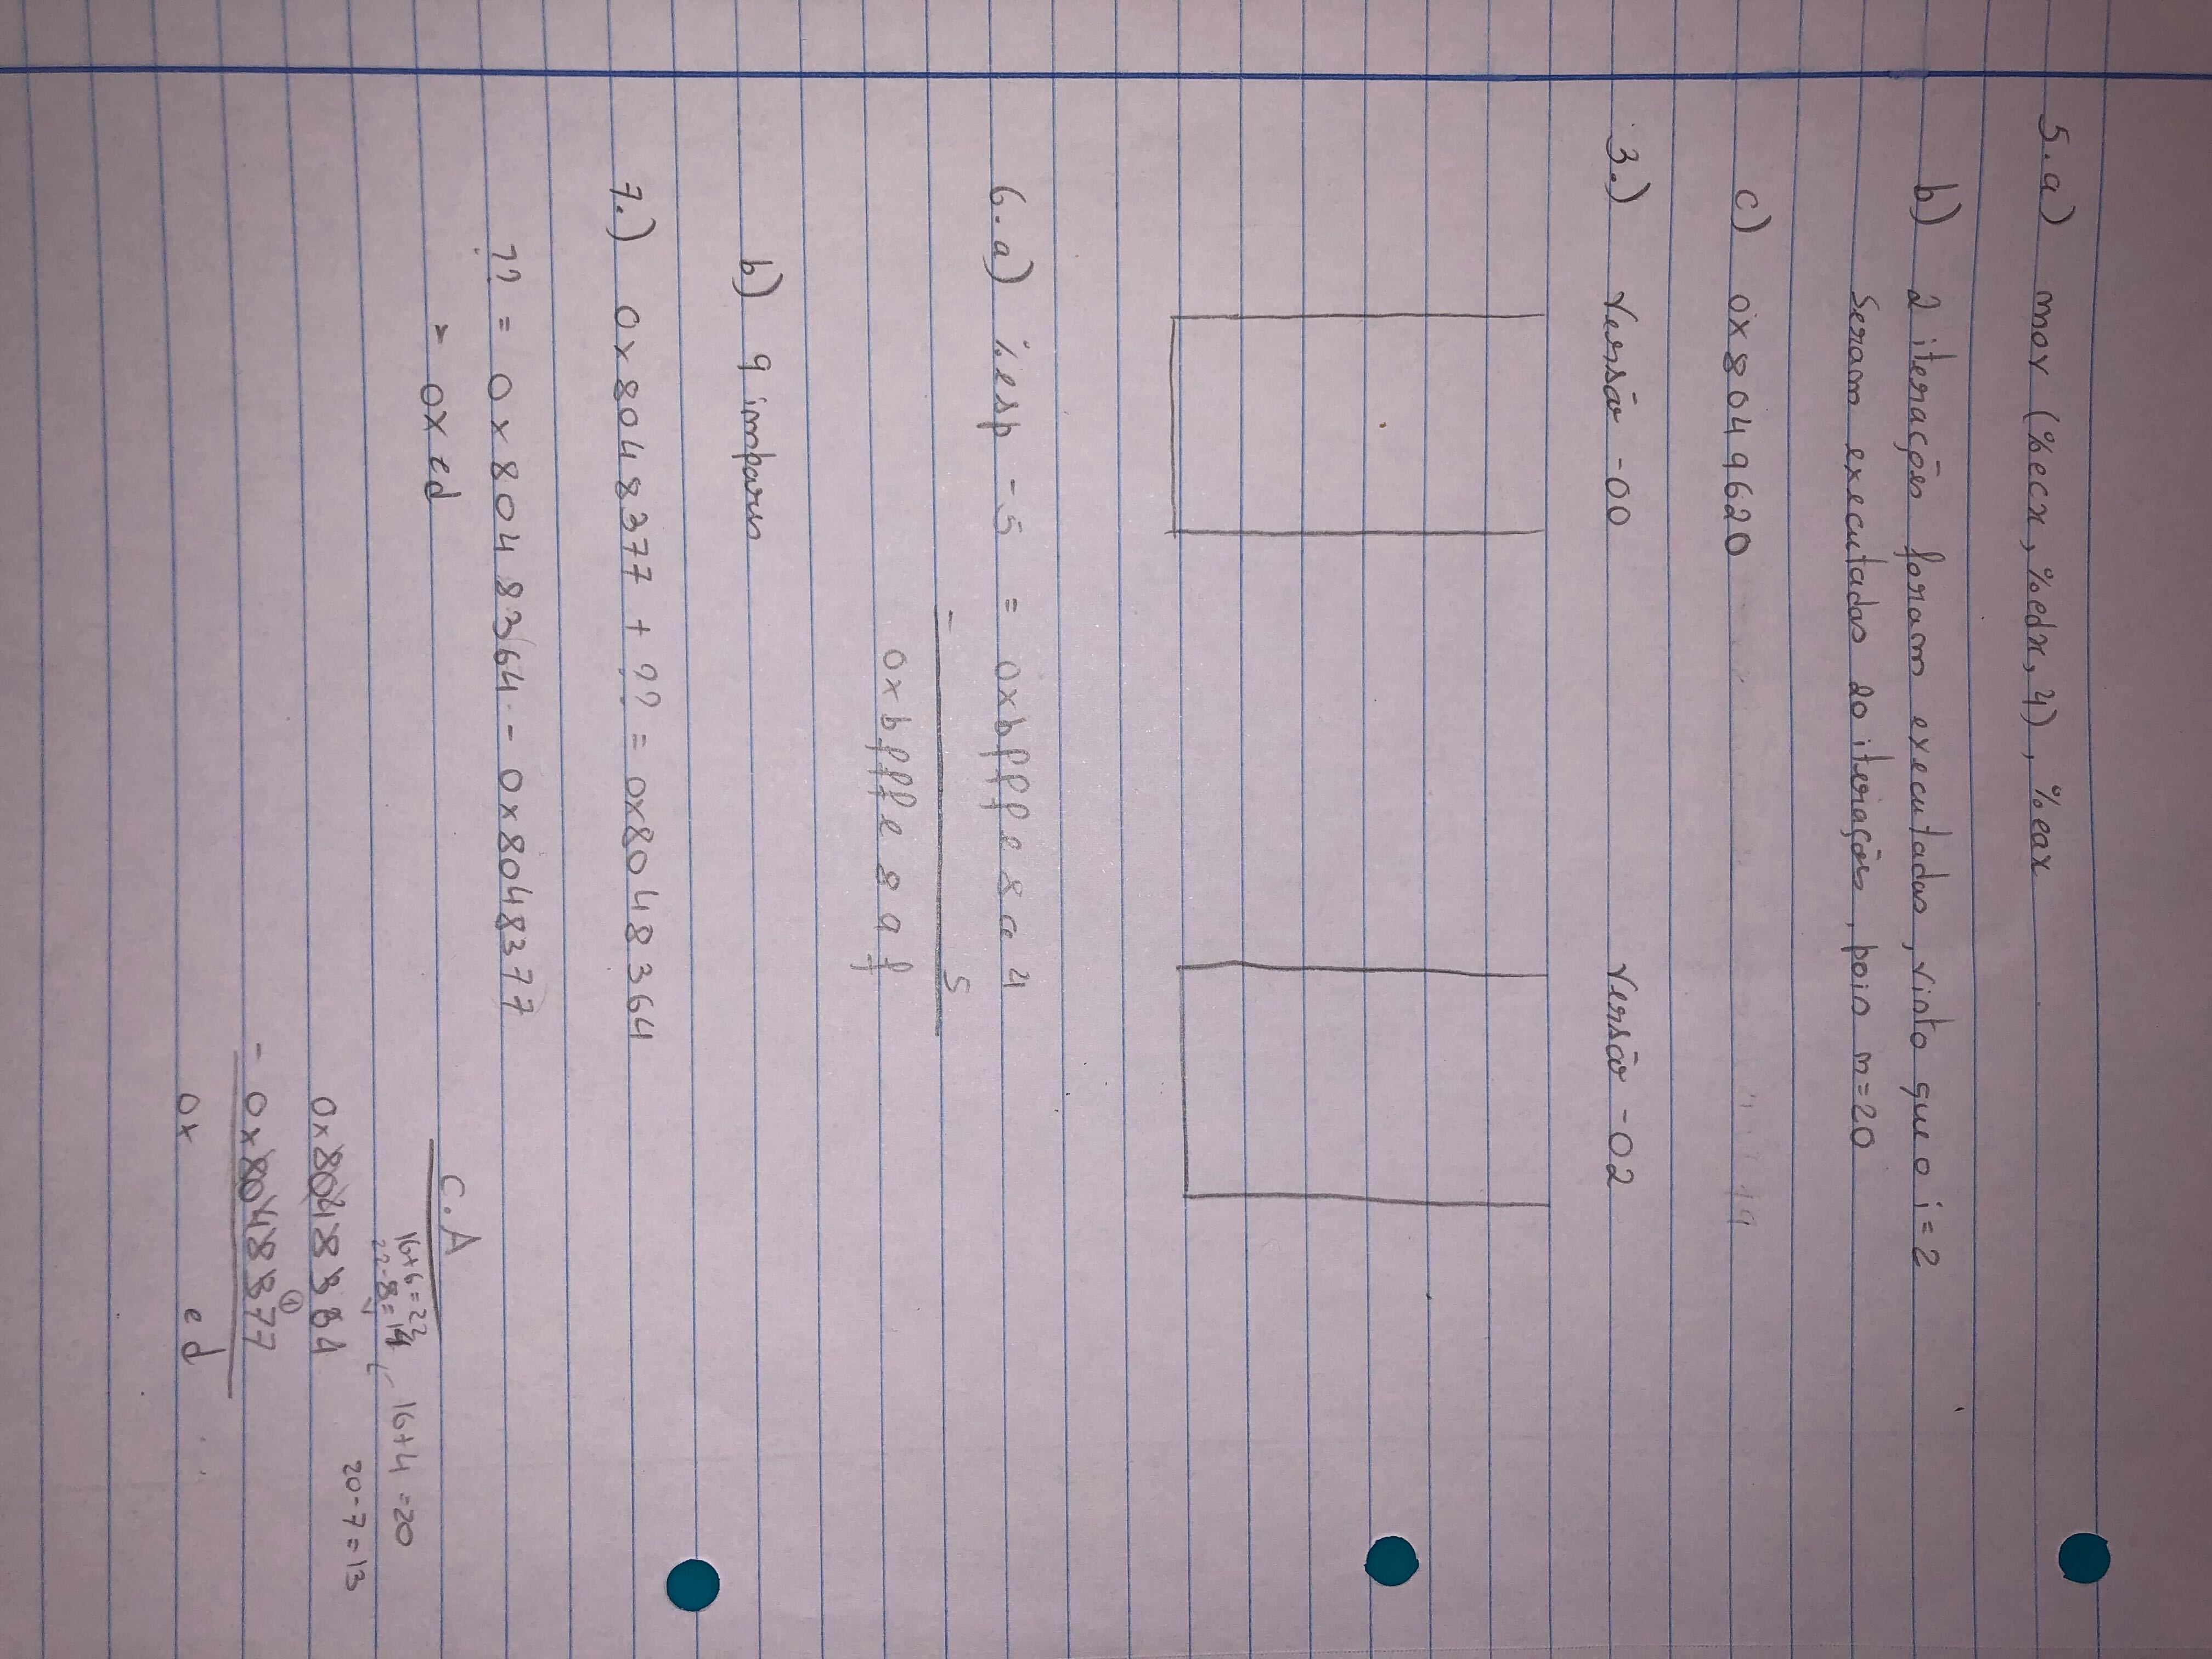 5.a) mov (%ecx, %edx, 4), %eax
b) 2 iterações foram executadas, visto que o i=2
Seram executadas 20 iterações, pois n=20
c) 0x8049620
3.) Versão -O0 Versão -O2
6.a) %esp - 5 = 0xbfffe8a4
- 5
0xbfffe8af
b) 9 impares
7.) 0x8048377 + ?? = 0x8048364
?? = 0x8048364 - 0x8048377
= 0xed
C.A
16+6=22
22-8=14 ← 16+4=20
20-7=13
0x8048364
①
- 0x8048377
0x ed